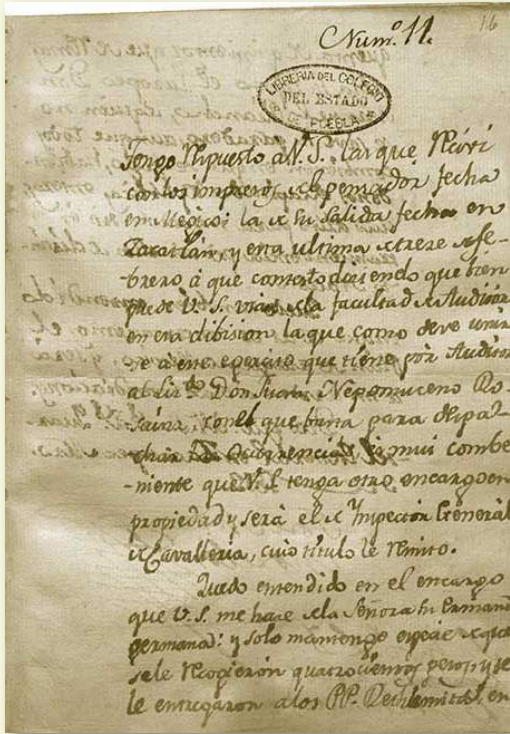 16
Num.º 11.
LIBRERIA DEL COLEGIO
DEL ESTADO
DE PUEBLA
Tengo rrpuesto a V. S. las que Reciví
con los impresos del pensador fecha
en Megico: la de su salida fecha en
Zacatlán, y esta ultima de treze de fe-
brero á que contesto diciendo que bien
puede V. S. usar de la facultad de Auditor
en esa dibision la que como deve unir
se a este egercito que tiene por Auditor
al Lic.do Don Juan Nepomuceno Ro-
sains, con el que basta para despa-
char ocurrencias, es mui combe-
niente que V. S. tenga otro encargo en
propiedad y será el de Inspector General
de Cavalleria, cuio titulo le remito.
Quedo entendido en el encargo
que V. S. me hase de la Señora su Ermana
germana: y solo mantengo especie de que
se le recogieron quatrocientos pesos, y se
le entregaron a los PP. en